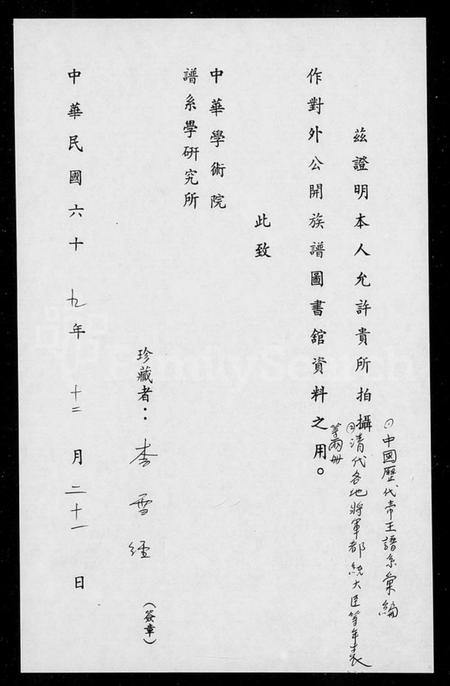 茲證明本人允許貴所拍攝
⑴中國歷代帝王譜系彙編
⑵清代各地將軍都統大臣等年表
等兩册
作對外公開族譜圖書舘資料之用。
此致
中華學術院
譜系學研究所
珍藏者：李雪經
（簽章）
中華民國六十九年十二月二十一日
FamilySearch